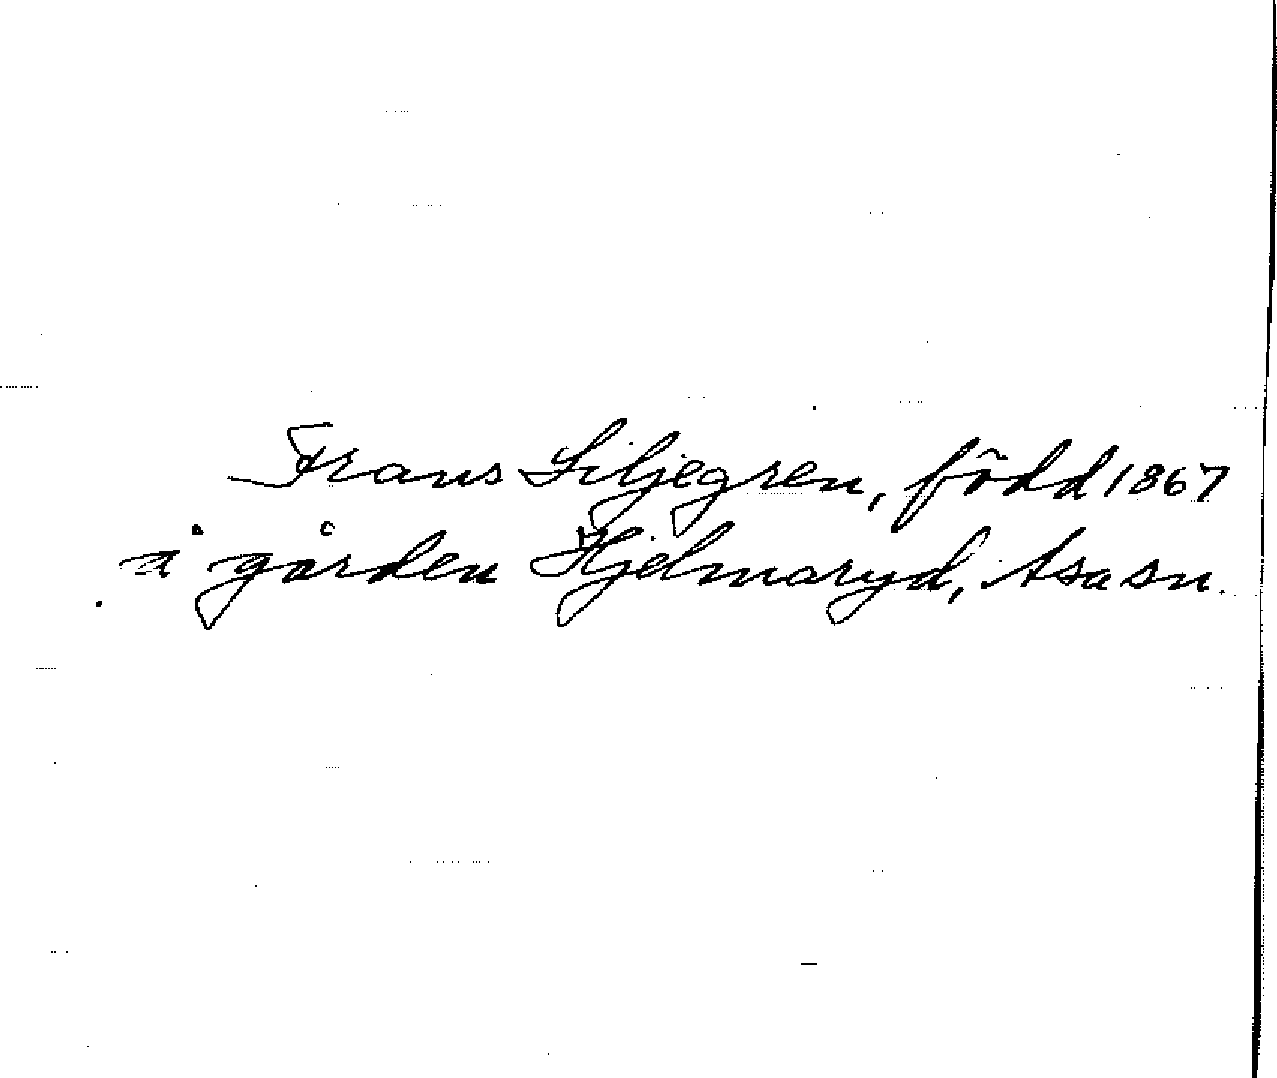 Frans Liljegren, född 1867
å gården Hjelmaryd, Asa sn.